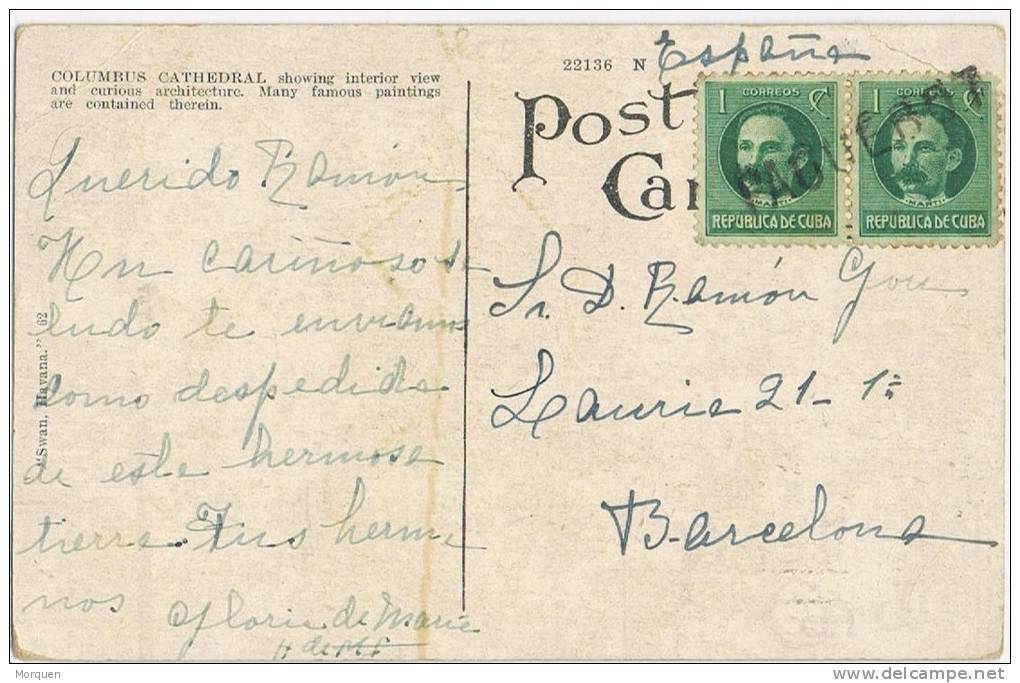 COLUMBUS CATHEDRAL showing interior view
and curious architecture. Many famous paintings
are contained therein.
Querido Ramón
Un cariñoso sa
ludo te enviamos
como despedida
de esta hermosa
tierra. Tus herma
nos
Gloria de María
"Swan, Havana." 62
22136 N
España
Post
Car
1 CORREOS ¢
MARTI
REPUBLICA DE CUBA
1 CORREOS ¢
MARTI
REPUBLICA DE CUBA
Sr. D. Ramón Gou
Lauria 21-1º
Barcelona
Morquen
delcampe.net